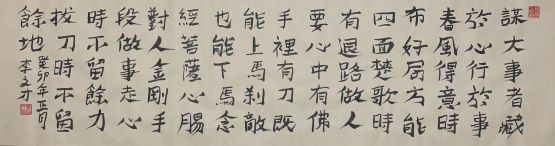 謀大事者藏
於心行於事
春風得意時
布好局方能
四面楚歌時
有退路做人
要心中有佛
手裡有刀既
能上馬刹敵
也能下馬念
經菩薩心腸
對人金剛手
段做事走心
時不留餘力
拔刀時不留
餘地
癸卯年正月
李文才